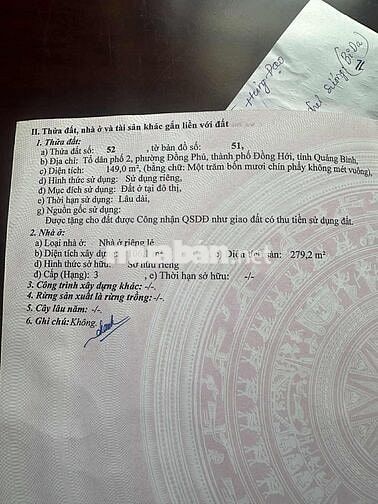 II. Thửa đất, nhà ở và tài sản khác gắn liền với đất
1. Thửa đất:
a) Thửa đất số: 52, tờ bản đồ số: 51,
b) Địa chỉ: Tổ dân phố 2, phường Đồng Phú, thành phố Đồng Hới, tỉnh Quảng Bình,
c) Diện tích: 149,0 m², (bằng chữ: Một trăm bốn mươi chín phẩy không mét vuông),
d) Hình thức sử dụng: Sử dụng riêng,
đ) Mục đích sử dụng: Đất ở tại đô thị,
e) Thời hạn sử dụng: Lâu dài,
g) Nguồn gốc sử dụng:
Được tặng cho đất được Công nhận QSDĐ như giao đất có thu tiền sử dụng đất.
2. Nhà ở:
a) Loại nhà ở: Nhà ở riêng lẻ
b) Diện tích xây dự c) Diện tích sàn: 279,2 m²
d) Hình thức sở hữu: Sở hữu riêng
đ) Cấp (Hạng): 3 e) Thời hạn sở hữu: -/-
3. Công trình xây dựng khác: -/-
4. Rừng sản xuất là rừng trồng: -/-
5. Cây lâu năm: -/-
6. Ghi chú: Không.